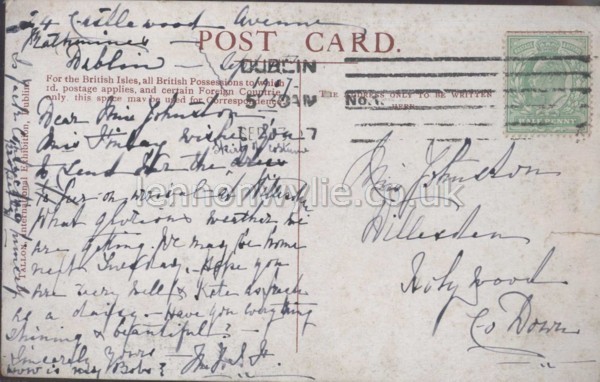 24 Castlewood Avenue
Rathmines
Dublin
POST CARD.
For the British Isles, all British Possessions to which
1d. postage applies, and certain Foreign Countries
only, this space may be used for Correspondence
THE ADDRESS ONLY TO BE WRITTEN
HERE.
DUBLIN
5 AM
No. 1.
SEP 7
HALF PENNY
Dear Miss Johnston
Miss wishes you
to send for the dress
What glorious weather we
are getting. We may be home
next Tuesday. Hope you
are very well & Kate as fresh
as a daisy - Have you everything
shining & beautiful? -
Sincerely yours -
how is my Bobs?
Miss Johnston
Hillesden
Holywood
Co Down
TALLON, International Exhibition, Dublin
lennonwylie.co.uk